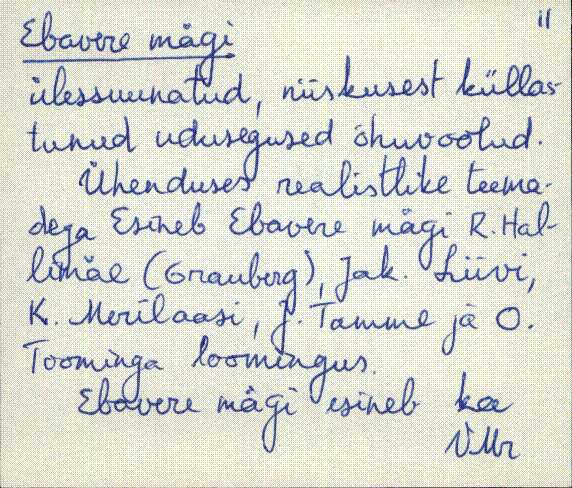 11
Ebavere mägi
ülessuunatud, niiskusest küllas-
tunud udusegused õhuvoolud.
Ühenduses realistlike teema-
dega Esineb Ebavere mägi R. Hal-
limäe (Grauberg), Jak. Liivi,
K. Merilaasi, J. Tamme ja O.
Toominga loomingus.
Ebavere mägi esineb ka
VMr